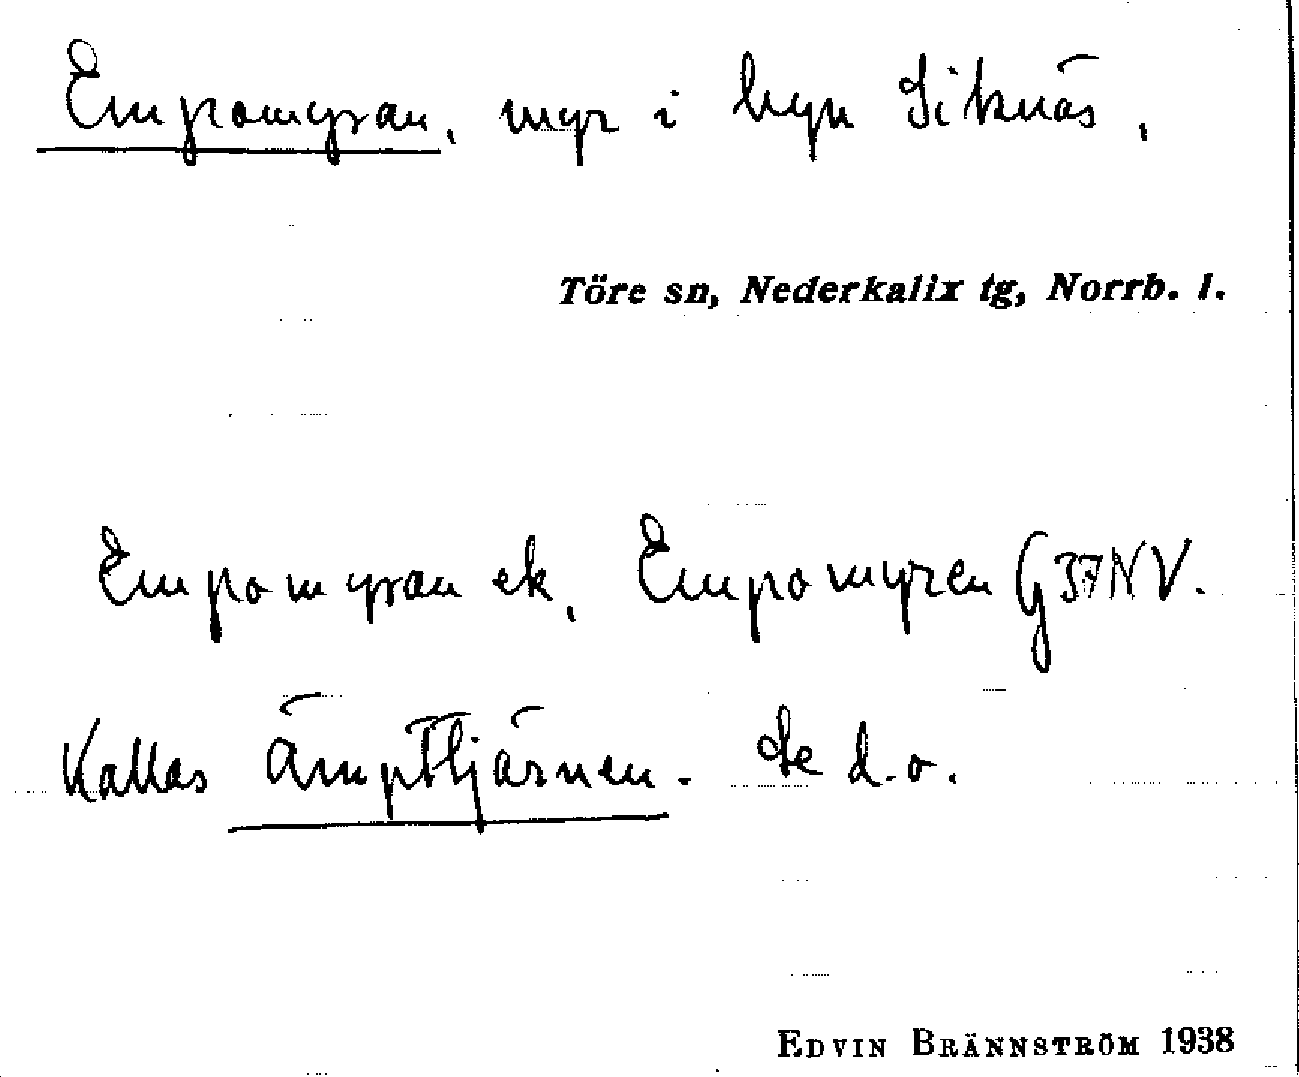 Empomyran, myr i byn Siknäs,
Töre sn, Nederkalix tg, Norrb. l.
Empomyran ek, Empomyren G37NV.
Kallas Ämpttjärnen. Se d.o.
EDVIN BRÄNNSTRÖM 1938